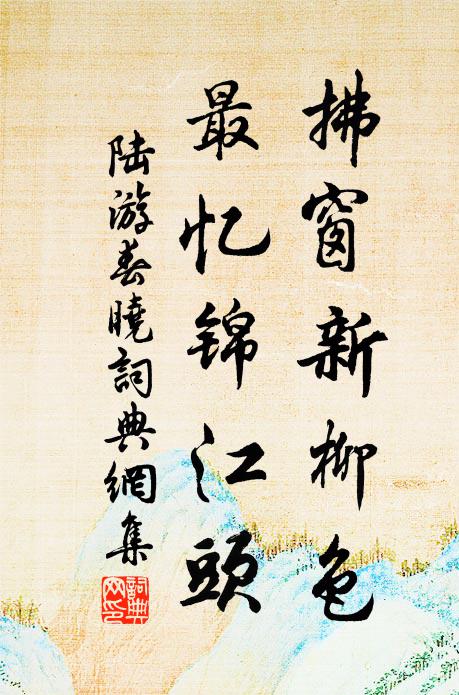 拂窗新柳色
最忆锦江头
陆游春曉詞典網集
詞典